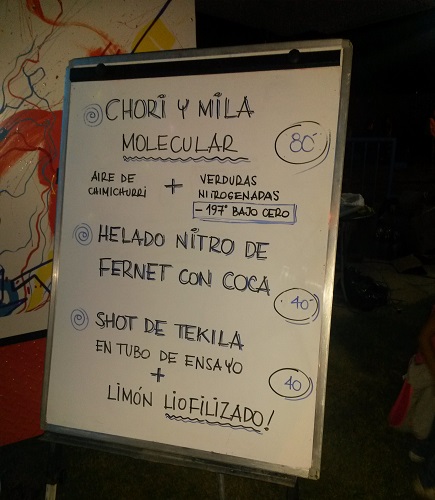 CHORI Y MILA
MOLECULAR
80
AIRE DE
CHIMICHURRI
+
VERDURAS
NITROGENADAS
-197° BAJO CERO
HELADO NITRO DE
FERNET CON COCA
40
SHOT DE TEKILA
EN TUBO DE ENSAYO
+
40
LIMÓN LIOFILIZADO!